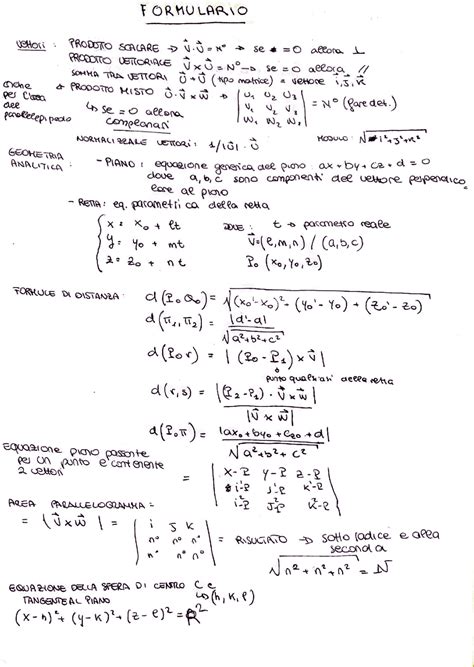 FORMULARIO
Vettori: PRODOTTO SCALARE → V⃗·U⃗ = N° → se = 0 allora ⊥
PRODOTTO VETTORIALE V⃗×U⃗ = N° → se = 0 allora //
SOMMA TRA VETTORI U⃗+U⃗ (tipo matrice) = vettore i⃗, j⃗, k⃗
anche per l'area del parallelepipedo
PRODOTTO MISTO U⃗·V⃗×W⃗ → | U₁ U₂ U₃ | = N° (fare det.)
| V₁ V₂ V₃ |
| W₁ W₂ W₃ |
↳ se = 0 allora complanari
NORMALIZZARE VETTORI: 1/|U⃗| · U⃗
MODULO: √i²+j²+k²
GEOMETRIA ANALITICA:
- PIANO: equazione generica del piano: ax+by+cz+d=0
dove a, b, c sono componenti del vettore perpendico
lare al piano
- RETTA: eq. parametrica della retta
x = x₀ + lt DOVE: t → parametro reale
y = y₀ + mt V⃗=(l,m,n) / (a,b,c)
z = z₀ + nt P₀ (x₀,y₀,z₀)
FORMULE DI DISTANZA: d(P₀Q₀) = √(x₀'-x₀)²-(y₀'-y₀)+(z₀'-z₀)
d(π₁,π₂) = |d'-d| / √a²+b²+c²
d(P₀r) = |(P₀-P₁)×V⃗|
punto qualsiasi della retta
d(r,s) = |(P₂-P₁)·V⃗×W⃗| / |V⃗×W⃗|
d(P₀π) = |ax₀+by₀+cz₀+d| / √a²+b²+c²
EQUAZIONE piano passante
per un punto e contenente
2 vettori
= | x-P y-P z-P |
| i¹-P j¹-P k¹-P |
| i²-P j²-P k²-P |
AREA PARALLELOGRAMMA:
= |V⃗×W⃗| = | i j k | = RISULTATO → sotto radice e alla
| n° n° n° | seconda
| n° n° n° | √n²+n²+n² = N
EQUAZIONE DELLA SFERA DI CENTRO C e
TANGENTE AL PIANO ↳(h,k,l)
(x-h)²+(y-k)²+(z-l)² = R²